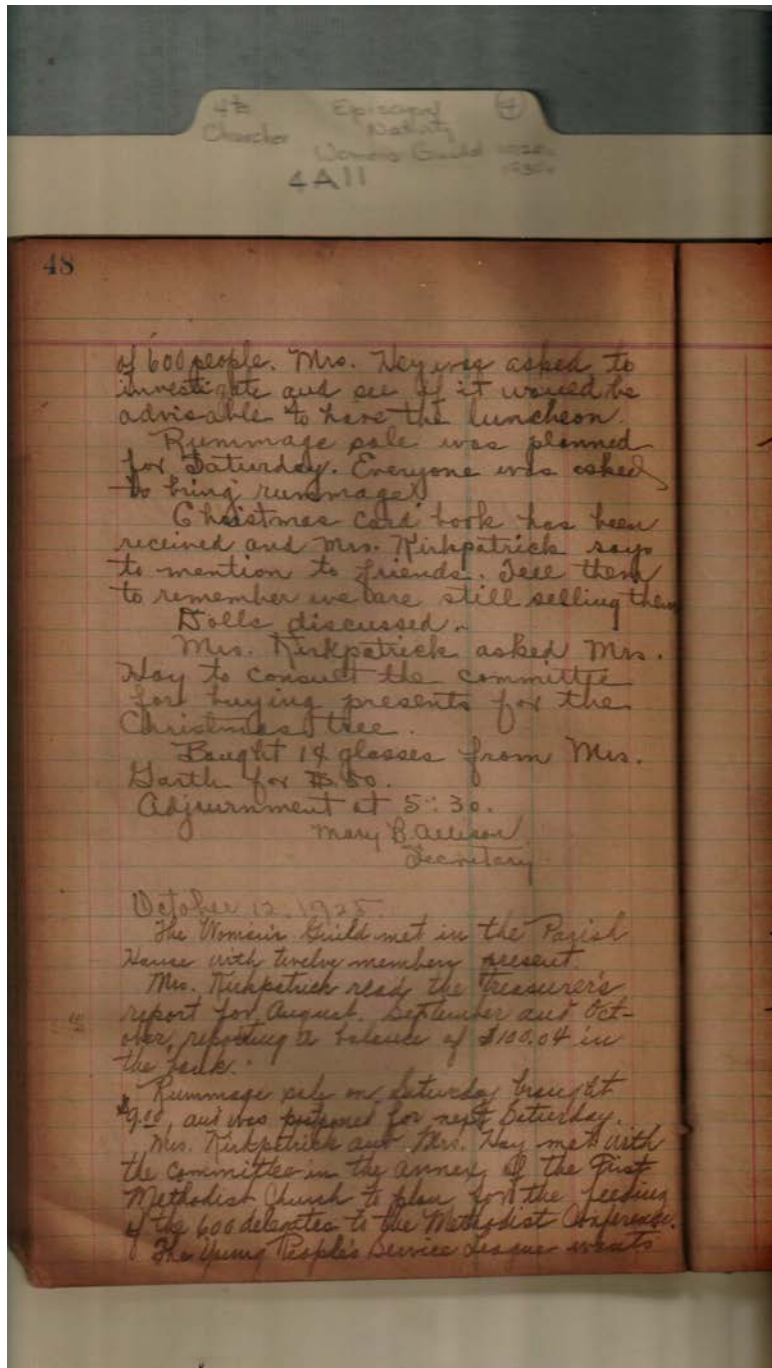 4th Episcopal 4
Churches Nativity
Womens Guild 1920s
4A11 1930s
48
of 600 people. Mrs. Hay was asked to
investigate and see if it would be
advisable to have the luncheon.
Rummage sale was planned
for Saturday. Everyone was asked
to bring rummage.
Christmas card book has been
received and Mrs. Kirkpatrick says
to mention to friends. Tell them
to remember we are still selling them
Dolls discussed.
Mrs. Kirkpatrick asked Mrs.
Hay to consult the committee
for buying presents for the
Christmas tree.
Bought 14 glasses from Mrs.
Garth for .50.
Adjournment at 5:30.
Mary B. Allison
Secretary
October 12, 1925.
The Woman's Guild met in the Parish
House with twelve members present.
Mrs. Kirkpatrick read the treasurer's
report for August, September and Oct-
ober, reporting a balance of $100.04 in
the bank.
Rummage sale on Saturday brought
$9.00, and was postponed for next Saturday.
Mrs. Kirkpatrick and Mrs. Hay met with
the committee in the annex of the First
Methodist Church to plan for the feeding
of the 600 delegates to the Methodist Conference.
The Young People's Service League wants